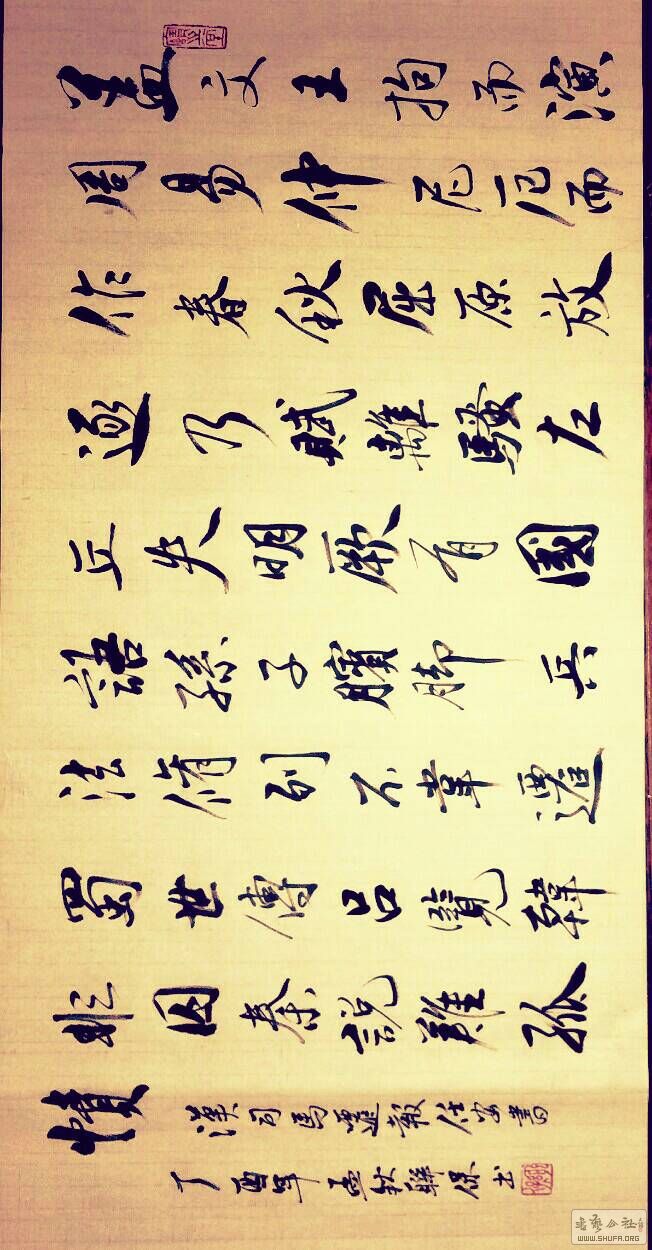 盖文王拘而演
周易仲尼厄而
作春秋屈原放
逐乃賦離騷左
丘失明厥有國
語孫子臏脚兵
法脩列不韋遷
蜀世傳呂覽韓
非囚秦說難孤
憤
漢司馬遷報任安書
丁酉年孟秋聯保书
书艺公社
WWW.SHUFA.ORG